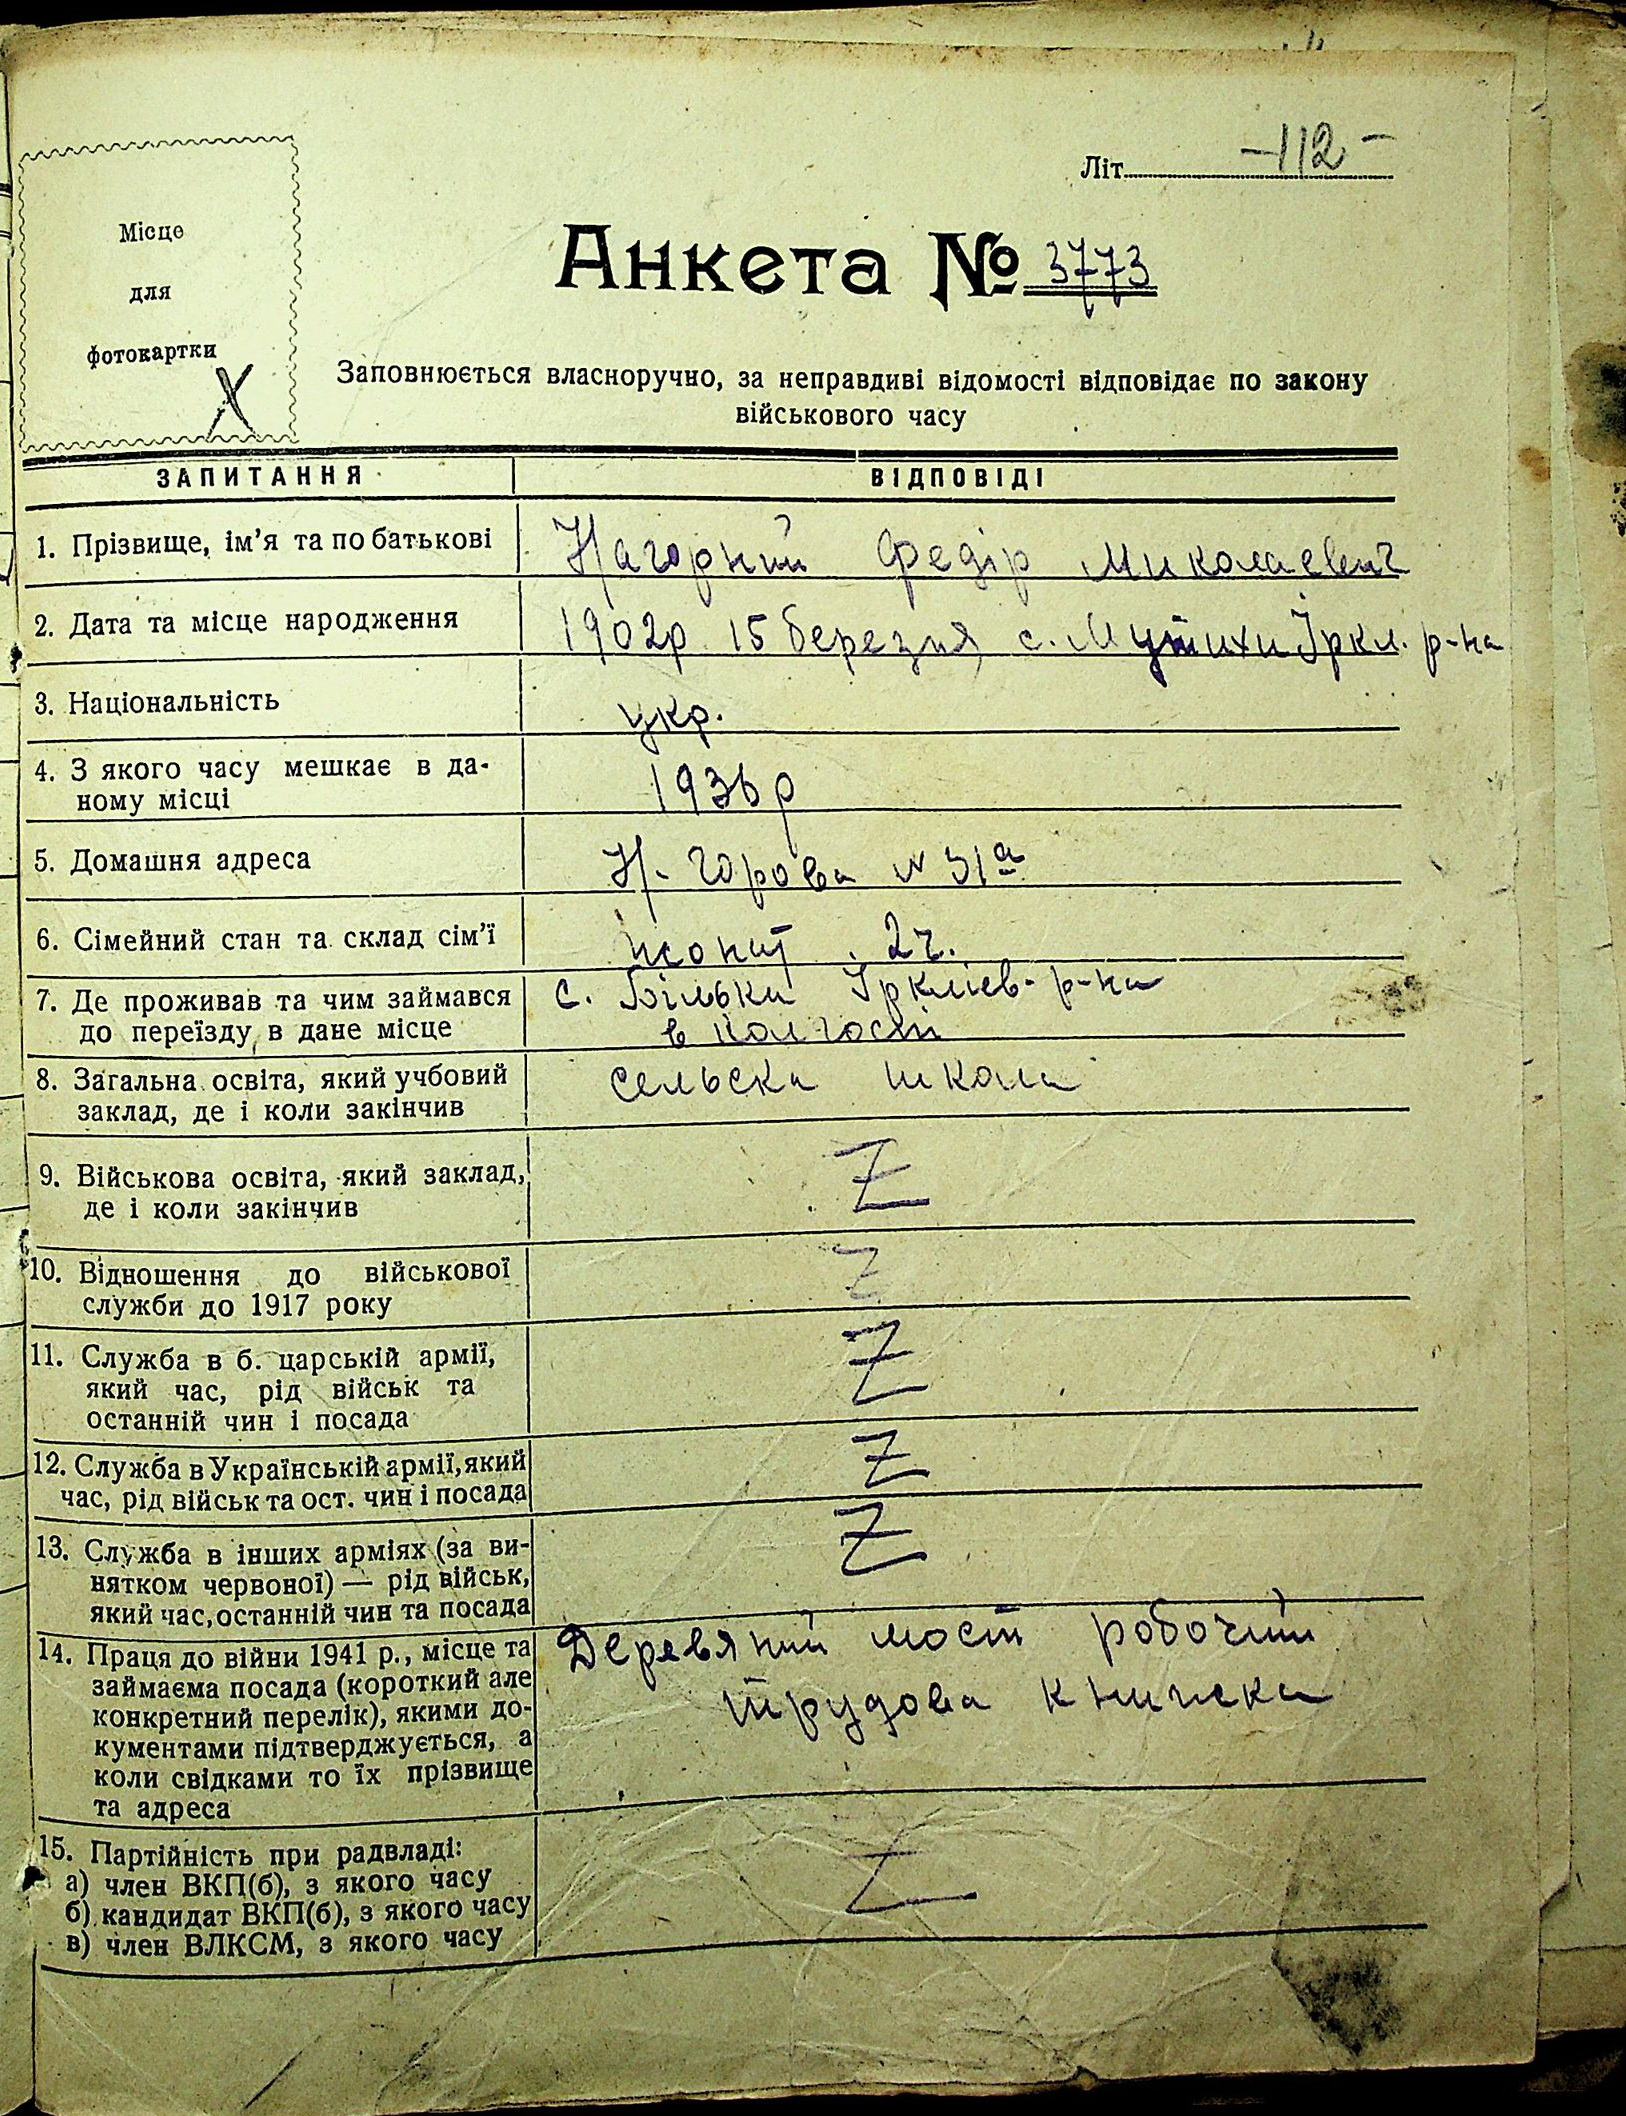 Літ. -112-
Місце
для
фотокартки
Х
Анкета № 3773
Заповнюється власноручно, за неправдиві відомості відповідає по закону
військового часу
ЗАПИТАННЯ ВІДПОВІДІ
1. Прізвище, ім'я та по батькові Нагорний Федір Миколаевич
2. Дата та місце народження 1902р 15 березня, с. Мутихи Іркл. р-на
3. Національність укр.
4. З якого часу мешкає в да-
ному місці 1936р
5. Домашня адреса Н-Горова № 31а
6. Сімейний стан та склад сім'ї жонат. 2ч.
7. Де проживав та чим займався с. Більки Ірклієв-р-на
до переїзду в дане місце в колгості
8. Загальна освіта, який учбовий сельска школа
заклад, де і коли закінчив
9. Військова освіта, який заклад, Z
де і коли закінчив
10. Відношення до військової Z
служби до 1917 року
11. Служба в б. царській армії, Z
який час, рід військ та
останній чин і посада
12. Служба в Українській армії, який Z
час, рід військ та ост. чин і посада
13. Служба в інших арміях (за ви- Z
нятком червоної) — рід військ,
який час, останній чин та посада
14. Праця до війни 1941 р., місце та Деревяний мост робочий
займаєма посада (короткий але трудова книжка
конкретний перелік), якими до-
кументами підтверджується, а
коли свідками то їх прізвище
та адреса
15. Партійність при радвладі: Z
а) член ВКП(б), з якого часу
б) кандидат ВКП(б), з якого часу
в) член ВЛКСМ, з якого часу